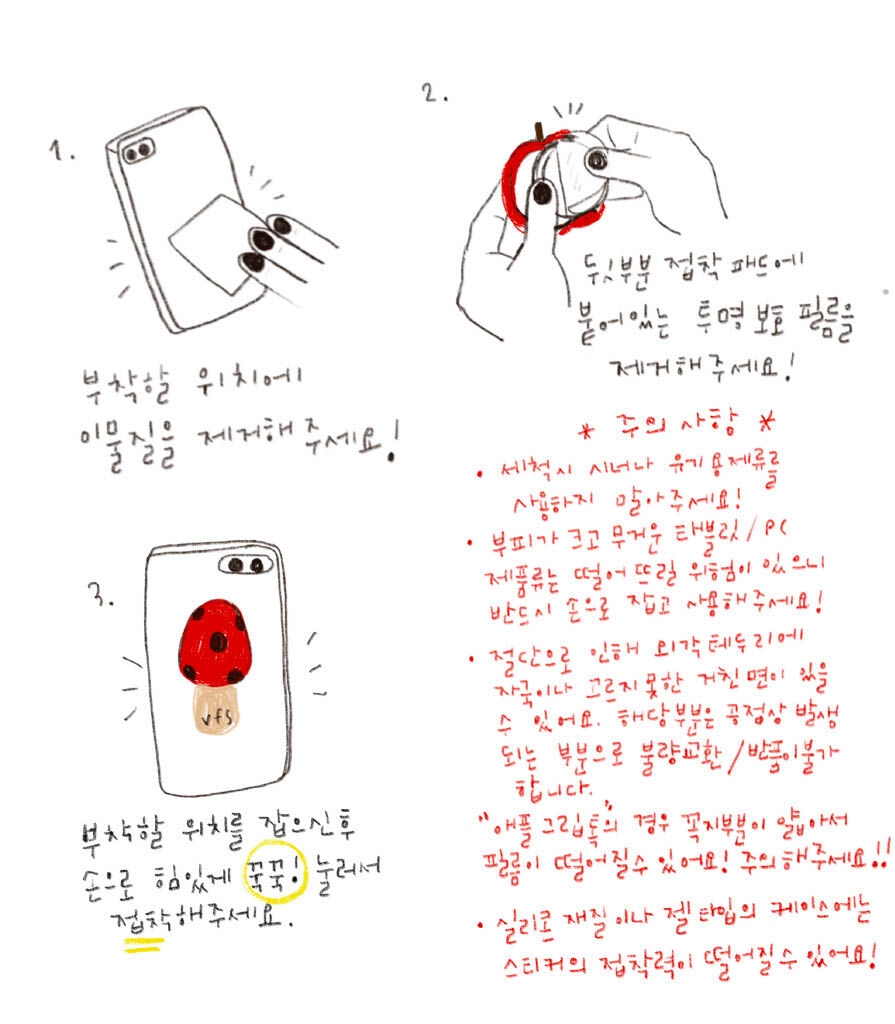 1.
부착할 위치에
이물질을 제거해주세요!
2.
뒷부분 접착 패드에
붙어있는 투명 보호 필름을
제거해주세요!
3.
vfs
부착할 위치를 잡으신후
손으로 힘있게 꾹꾹! 눌러서
접착해주세요.
* 주의 사항 *
• 세척시 시너나 유기용제류를
사용하지 말아주세요!
• 부피가 크고 무거운 태블릿/PC
제품류는 떨어뜨릴 위험이 있으니
반드시 손으로 잡고 사용해주세요!
• 절단으로 인해 외각테두리에
자국이나 고르지못한 거친면이 있을
수 있어요. 해당부분은 공정상 발생
되는 부분으로 불량교환/반품이불가
합니다.
"애플그립톡"의 경우 꼭지부분이 얇아서
필름이 떨어질수있어요! 주의해주세요!!
• 실리콘 재질이나 젤타입의 케이스에는
스티커의 접착력이 떨어질수있어요!